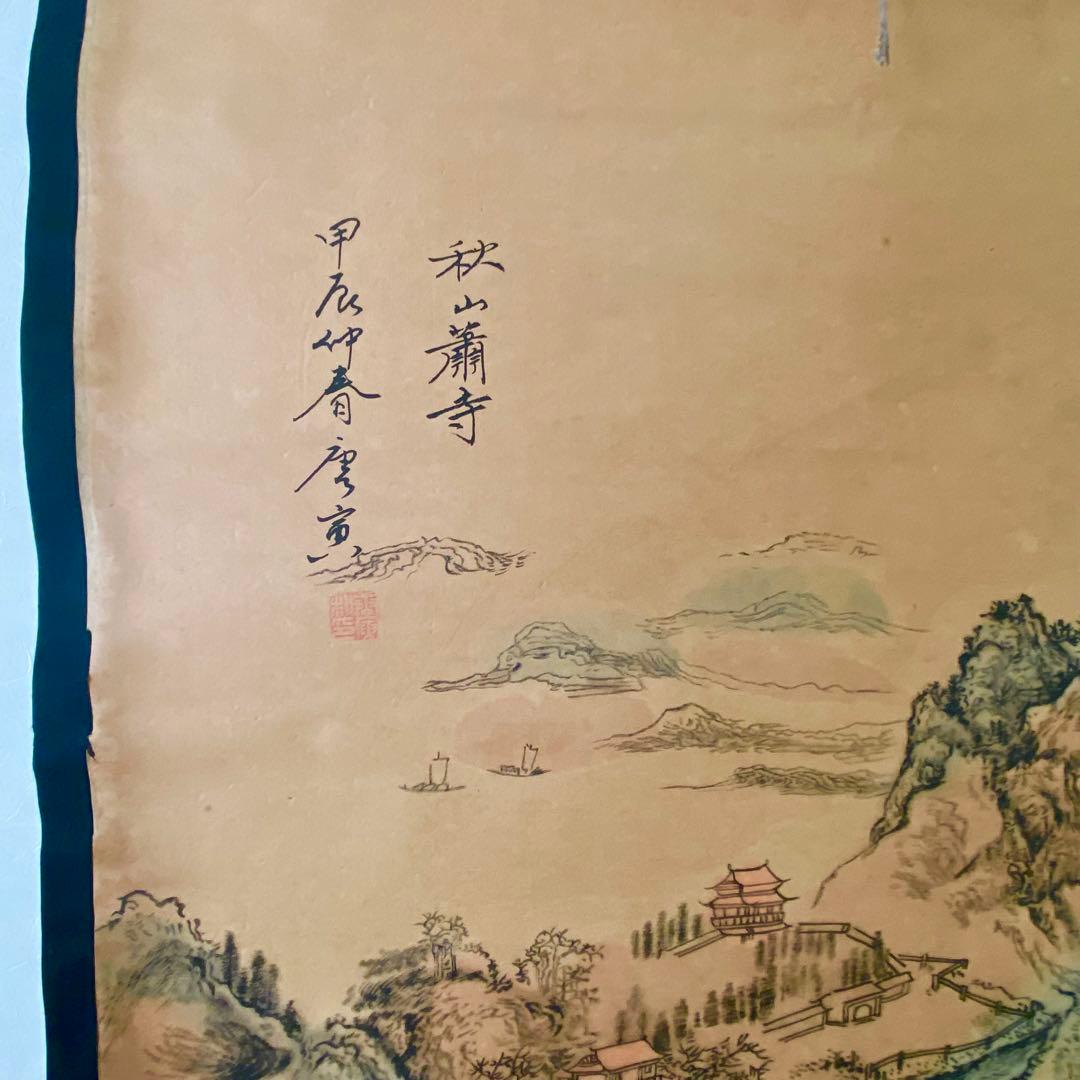 秋山蕭寺
甲辰仲春唐寅